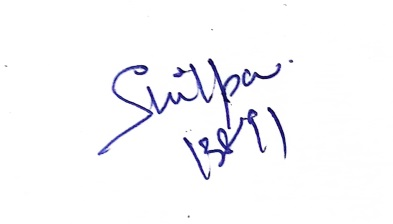 Shilpa.
13891